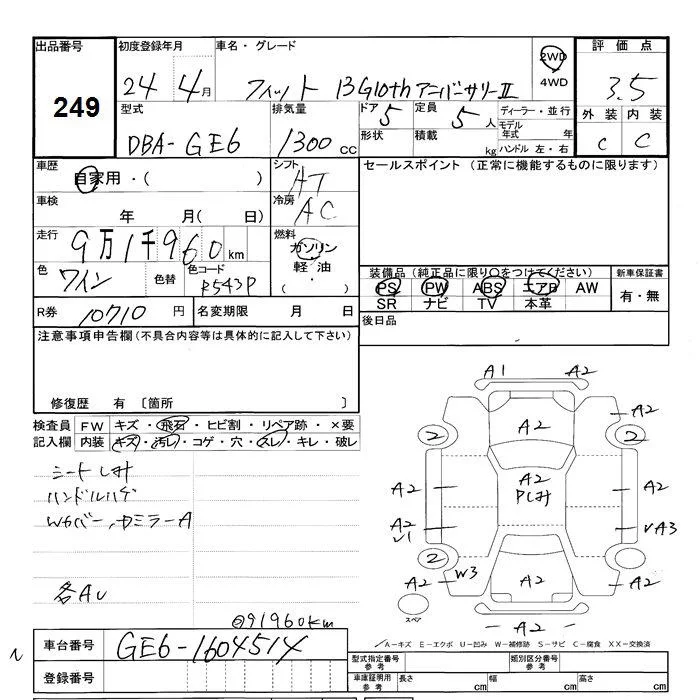 出品番号 初度登録年月 車名・グレード 2WD 4WD 評価点
249
24 4月 フィット 13G10thアニバーサリーII 3.5
型式 排気量 ドア 定員 ディーラー・並行 外装 内装
DBA-GE6 1300cc 5 5人 モデル年式 年 C C
形状 積載 kg ハンドル 左・右
車歴 シフト セールスポイント (正常に機能するものに限ります)
自家用・( ) AT
車検 冷房
年 月( 日) AC
走行 燃料
9万1千960km ガソリン
軽油・
色 色替 色コード 装備品 (純正品に限り○をつけてください) 新車保証書
ワイン R543P PS PW ABS エアB AW 有・無
SR ナビ TV 本革
R券 10710円 名変期限 月 日 後日品
注意事項申告欄(不具合内容等は具体的に記入して下さい)
修復歴 有 〔箇所 〕
検査員 FW キズ・飛石・ヒビ割・リペア跡・×要
記入欄 内装 キズ・汚レ・コゲ・穴・スレ・キレ・破レ
シートしみ
ハンドルハゲ
各AU
@91960km
A1 A2
A2 A2
2 2
A2 A2 A2
Pしみ
A2 A3
V1
2
A2 W3 A2 A2
スペア A2
A-キズ E-エクボ U-凹み W-補修跡 S-サビ C-腐食 XX-交換済
車台番号 GE6-1604514
型式指定番号 参考 類別区分番号 参考
登録番号 車庫証明用 参考 長さ cm 幅 cm 高さ cm